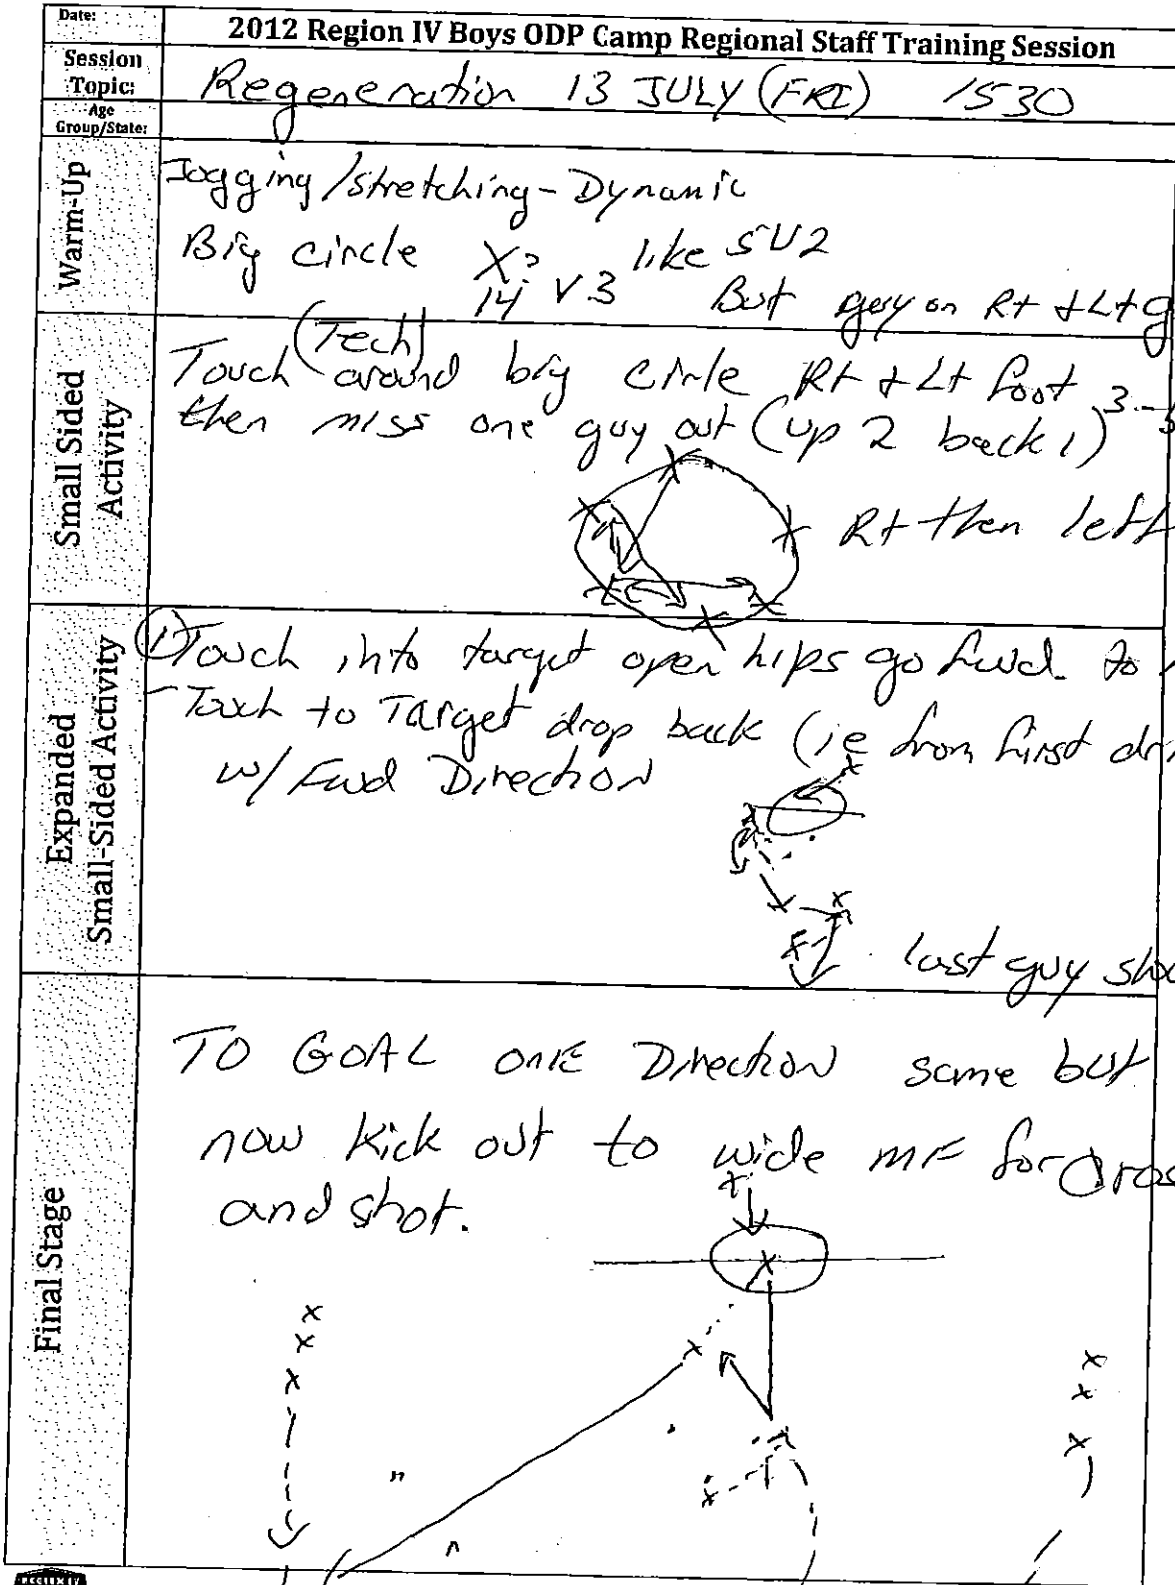 Date:
2012 Region IV Boys ODP Camp Regional Staff Training Session
Session Topic:
Regeneration 13 JULY (FRI) 1530
Age Group/State:
Warm-Up
Jogging/stretching - Dynamic
Big circle X? like 5V2
14 v 3 But guy on Rt + Lt g
Small Sided Activity
(Tech)
Touch around big circle Rt + Lt foot
then miss one guy out (up 2 back 1) 3-5
Rt then left
Expanded Small-Sided Activity
① Touch into target open hips go fwd to
- Touch to Target drop back (ie from first dr
w/ Fwd Direction
last guy sho
Final Stage
TO GOAL ONE Direction same but
now kick out to wide MF for cros
and shot.
REGION IV